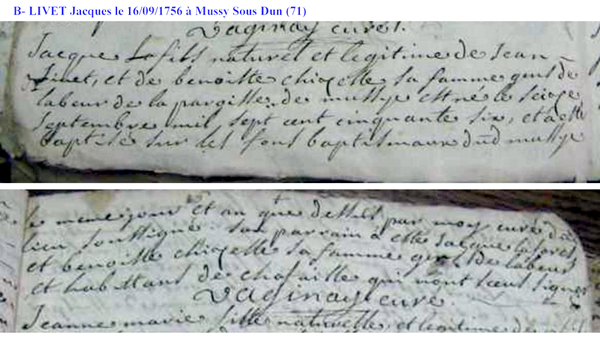 B- LIVET Jacques le 16/09/1756 à Mussy Sous Dun (71)
Vaginay curé.
Jacque fils naturel et legitime de Jean
Livet, et de benoitte chizelle sa famme gens de
labeur de la paroisse de mussye est né le seize
septembre mil sept cent cinquante six, et a été
baptisé sur les fons baptismaux dud mussye
le meme jour et an que dessus par moy curé dud
lieu soussigné son parrain a été Jacque
et benoitte chizelle sa famme gens de labeur
et habittans de qui nont sceus signer
Vaginay curé
Jeanne marie fille naturelle et legitime de